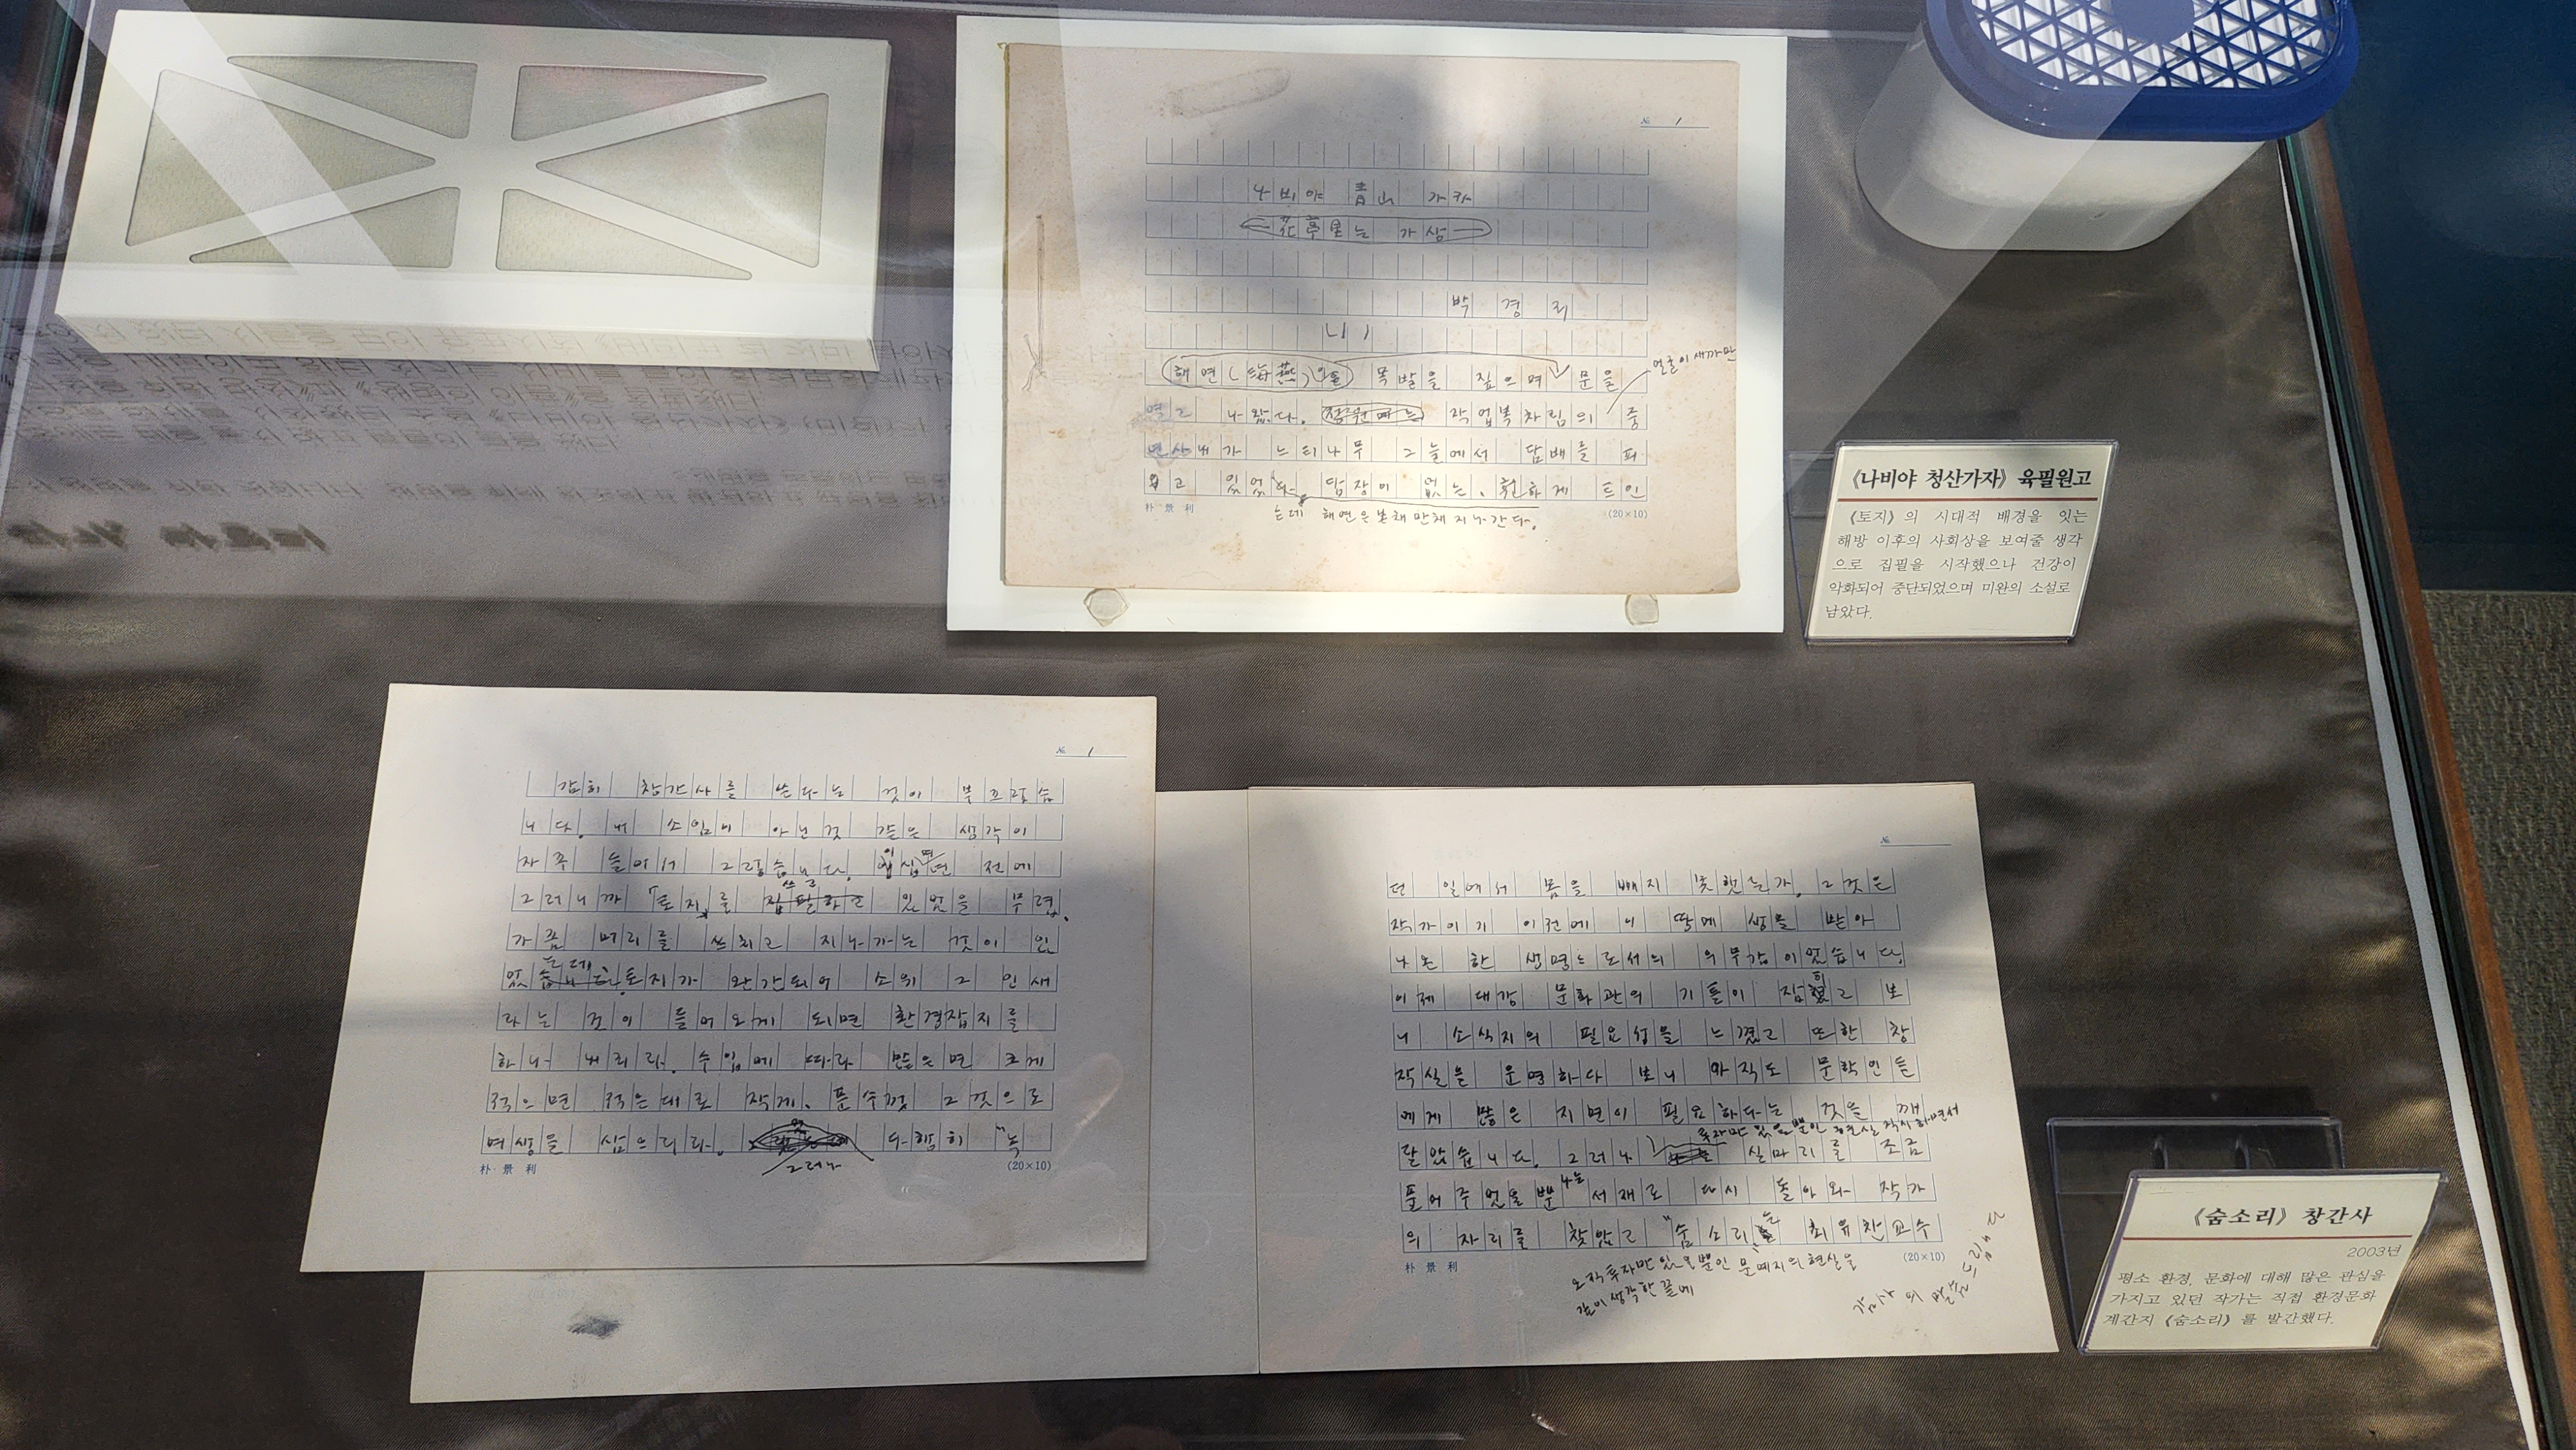 № 1
나비야 青山 가자
花亭里는 가상
박 경 리
해연(海燕)은 목발을 짚으며 문을
얼굴이 새까만
열고 나왔다. 작업복차림의 중
년사내가 느티나무 그늘에서 담배를 피
우고 있었다. 담장이 없는, 훤하게 트인
는데 해연은 본채 만채 지나간다.
朴 景 利
(20×10)
《나비야 청산가자》 육필원고
《토지》의 시대적 배경을 잇는
해방 이후의 사회상을 보여줄 생각
으로 집필을 시작했으나 건강이
악화되어 중단되었으며 미완의 소설로
남았다.
№ 1
감히 창간사를 쓴다는 것이 부끄럽습
니다. 내 소임이 아닌것 같은 생각이
자주 들어서 그렇습니다. 이십 년 전에
쓰고
그러니까 「토지」를 집필하고 있었을 무렵,
가끔 머리를 스치고 지나가는 것이 있
는데
었습니다. 토지가 완간되어 소위 그 인세
라는 것이 들어오게 되면 환경잡지를
하나 내리라. 수입에 따라 많으면 크게
적으면 적은대로 작게, 푼수껏 그것으로
여생을 삼으리라. 다행히 "녹
그러나
朴 景 利
(20×10)
№
던 일에서 몸을 빼지 못했는가, 그것은
작가이기 이전에 이 땅에 생을 받아
나온 한 생명으로서의 의무감이었습니다.
이제 대강 문화관의 기틀이 잡히고 보
니 소식지의 필요성을 느꼈고 또한 창
작실을 운영하다 보니 아직도 문학인들
에게 많은 지면이 필요하다는 것을 깨
투자만 있을 뿐인 현실 직시하면서
달았습니다. 그러나 실마리를 조금
풀어주었을뿐 나는 서재로 다시 돌아와 작가
의 자리를 찾았고 "숨소리"는 최유찬교수
朴 景 利
(20×10)
오직 투자만 있을 뿐인 문예지의 현실을
같이 생각한 끝에
감사의 말씀 드립니다
《숨소리》 창간사
2003년
평소 환경, 문화에 대해 많은 관심을
가지고 있던 작가는 직접 환경문화
계간지 《숨소리》를 발간했다.